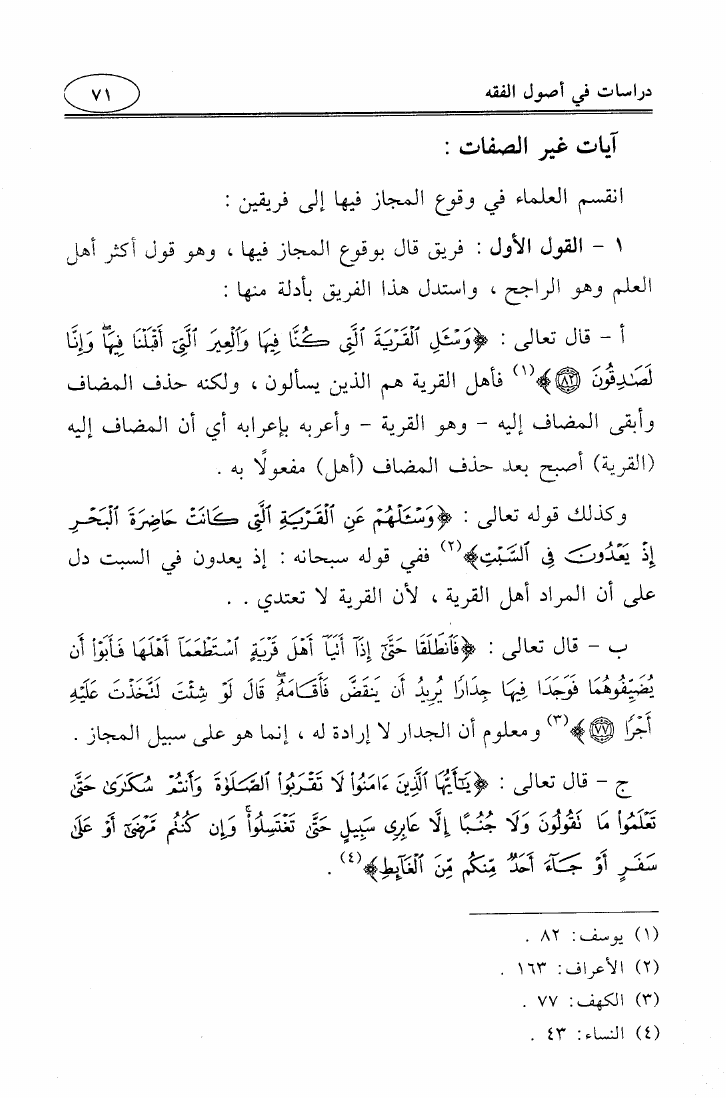 دراسات في أصول الفقه
٧١
آيات غير الصفات :
انقسم العلماء في وقوع المجاز فيها إلى فريقين :
١ - القول الأول : فريق قال بوقوع المجاز فيها ، وهو قول أكثر أهل
العلم وهو الراجح ، واستدل هذا الفريق بأدلة منها :
أ - قال تعالى : ﴿وَسْـَٔلِ ٱلْقَرْيَةَ ٱلَّتِى كُنَّا فِيهَا وَٱلْعِيرَ ٱلَّتِىٓ أَقْبَلْنَا فِيهَا ۖ وَإِنَّا
لَصَـٰدِقُونَ ۝٨٢﴾(١) فأهل القرية هم الذين يسألون ، ولكنه حذف المضاف
وأبقى المضاف إليه - وهو القرية - وأعربه بإعرابه أي أن المضاف إليه
(القرية) أصبح بعد حذف المضاف (أهل) مفعولًا به .
وكذلك قوله تعالى : ﴿وَسْـَٔلْهُمْ عَنِ ٱلْقَرْيَةِ ٱلَّتِى كَانَتْ حَاضِرَةَ ٱلْبَحْرِ
إِذْ يَعْدُونَ فِى ٱلسَّبْتِ﴾(٢) ففي قوله سبحانه : إذ يعدون في السبت دل
على أن المراد أهل القرية ، لأن القرية لا تعتدي . .
ب - قال تعالى : ﴿فَٱنطَلَقَا حَتَّىٰٓ إِذَآ أَتَيَآ أَهْلَ قَرْيَةٍ ٱسْتَطْعَمَآ أَهْلَهَا فَأَبَوْا۟ أَن
يُضَيِّفُوهُمَا فَوَجَدَا فِيهَا جِدَارًا يُرِيدُ أَن يَنقَضَّ فَأَقَامَهُۥ ۖ قَالَ لَوْ شِئْتَ لَتَّخَذْتَ عَلَيْهِ
أَجْرًا ۝٧٧﴾(٣) ومعلوم أن الجدار لا إرادة له ، إنما هو على سبيل المجاز .
ج - قال تعالى : ﴿يَـٰٓأَيُّهَا ٱلَّذِينَ ءَامَنُوا۟ لَا تَقْرَبُوا۟ ٱلصَّلَوٰةَ وَأَنتُمْ سُكَـٰرَىٰ حَتَّىٰ
تَعْلَمُوا۟ مَا تَقُولُونَ وَلَا جُنُبًا إِلَّا عَابِرِى سَبِيلٍ حَتَّىٰ تَغْتَسِلُوا۟ ۚ وَإِن كُنتُم مَّرْضَىٰٓ أَوْ عَلَىٰ
سَفَرٍ أَوْ جَآءَ أَحَدٌ مِّنكُم مِّنَ ٱلْغَآئِطِ﴾(٤) .
(١) يوسف: ٨٢ .
(٢) الأعراف: ١٦٣ .
(٣) الكهف: ٧٧ .
(٤) النساء: ٤٣ .